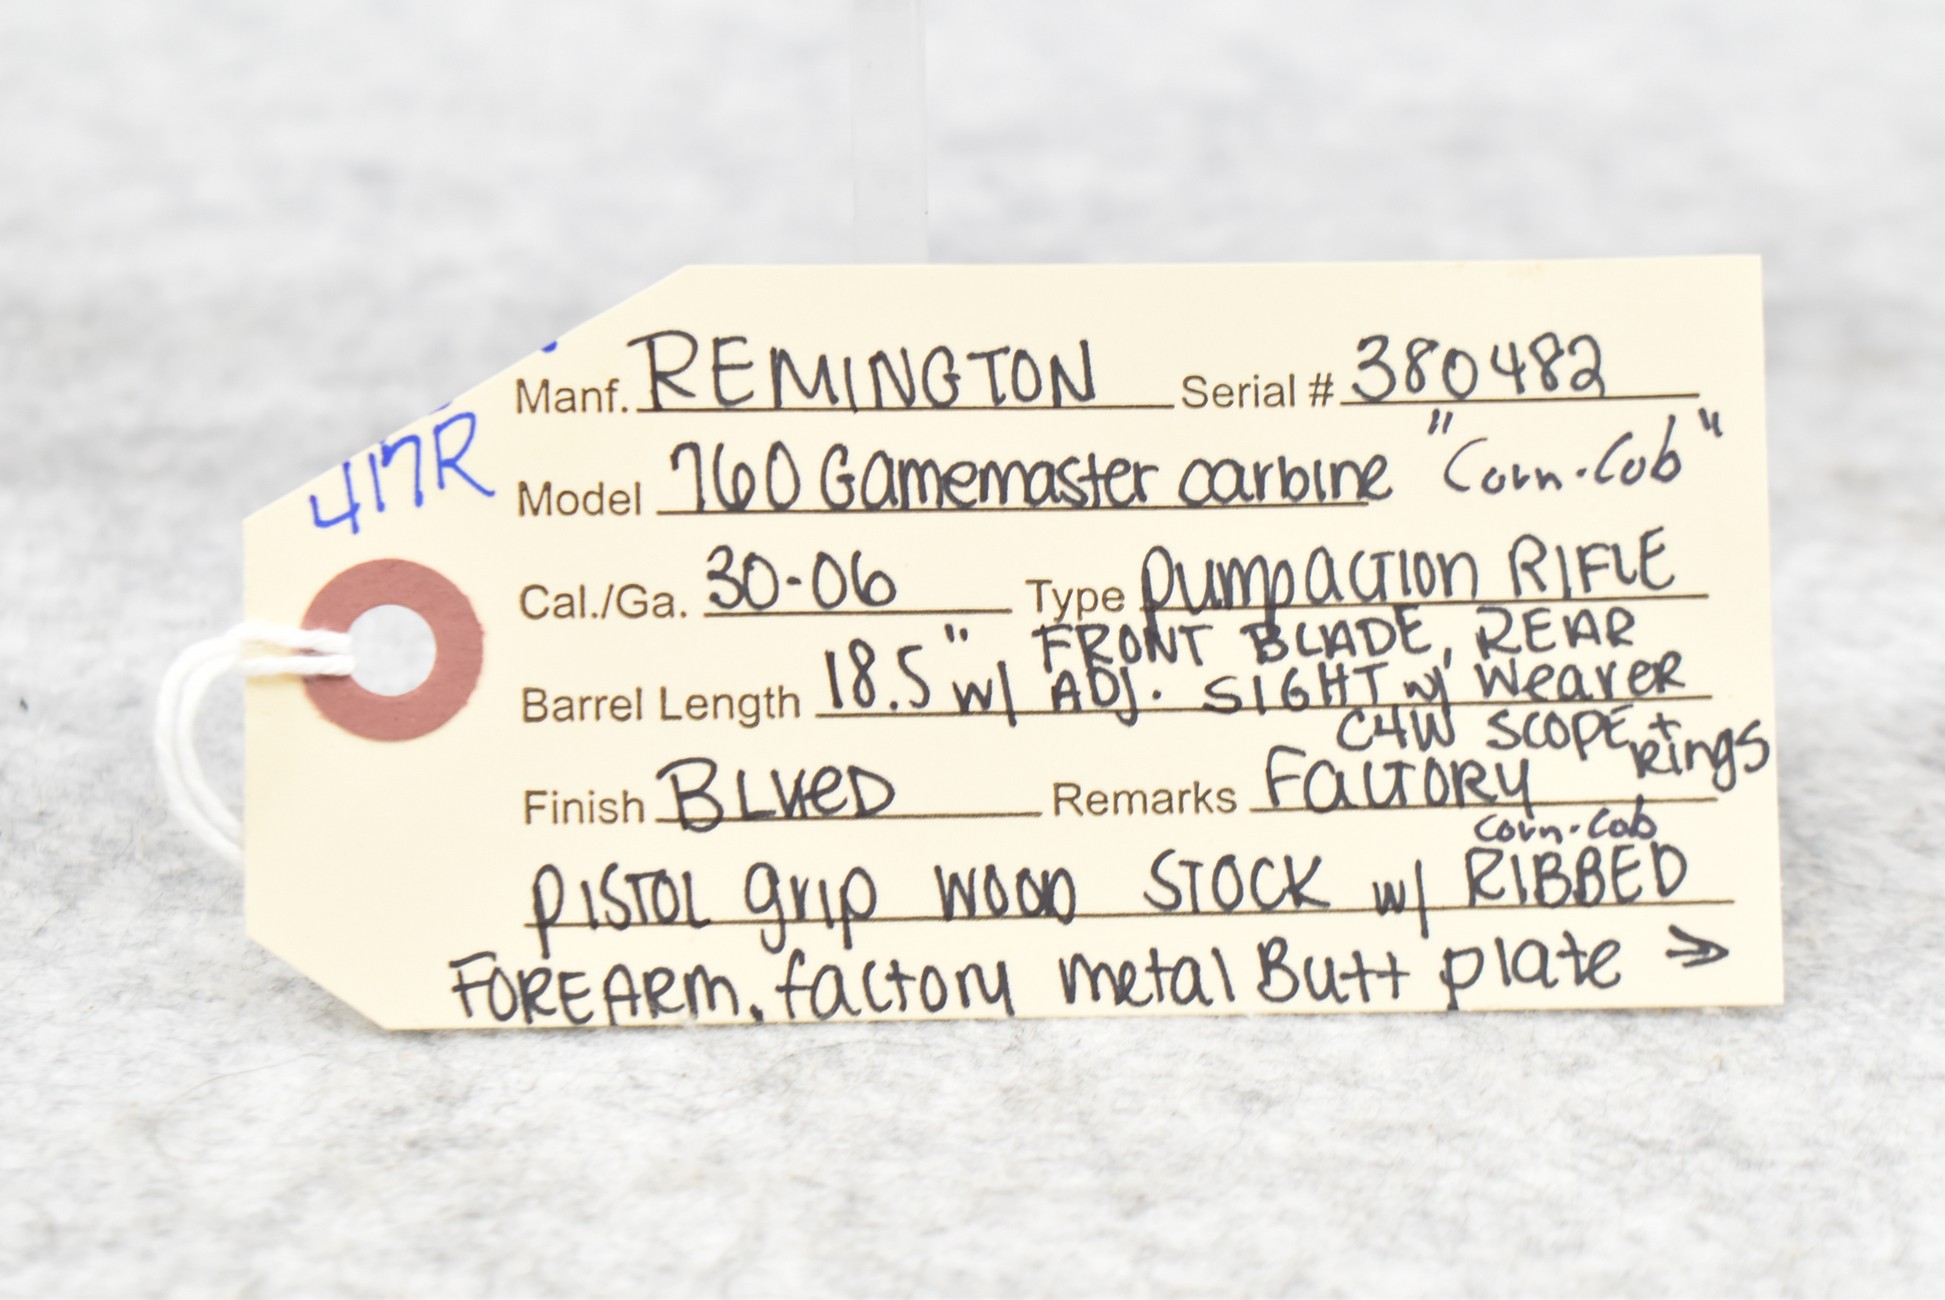 417R
Manf. REMINGTON Serial # 380482
Model 760 Gamemaster carbine "Corn-Cob"
Cal./Ga. 30-06 Type pump action RIFLE
FRONT BLADE, REAR
Barrel Length 18.5" w/ ADJ. SIGHT w/ Weaver
C4W SCOPE + Rings
Finish BLUED Remarks FACTORY
corn-cob
PISTOL grip WOOD STOCK w/ RIBBED
FOREARM. factory metal Butt plate →